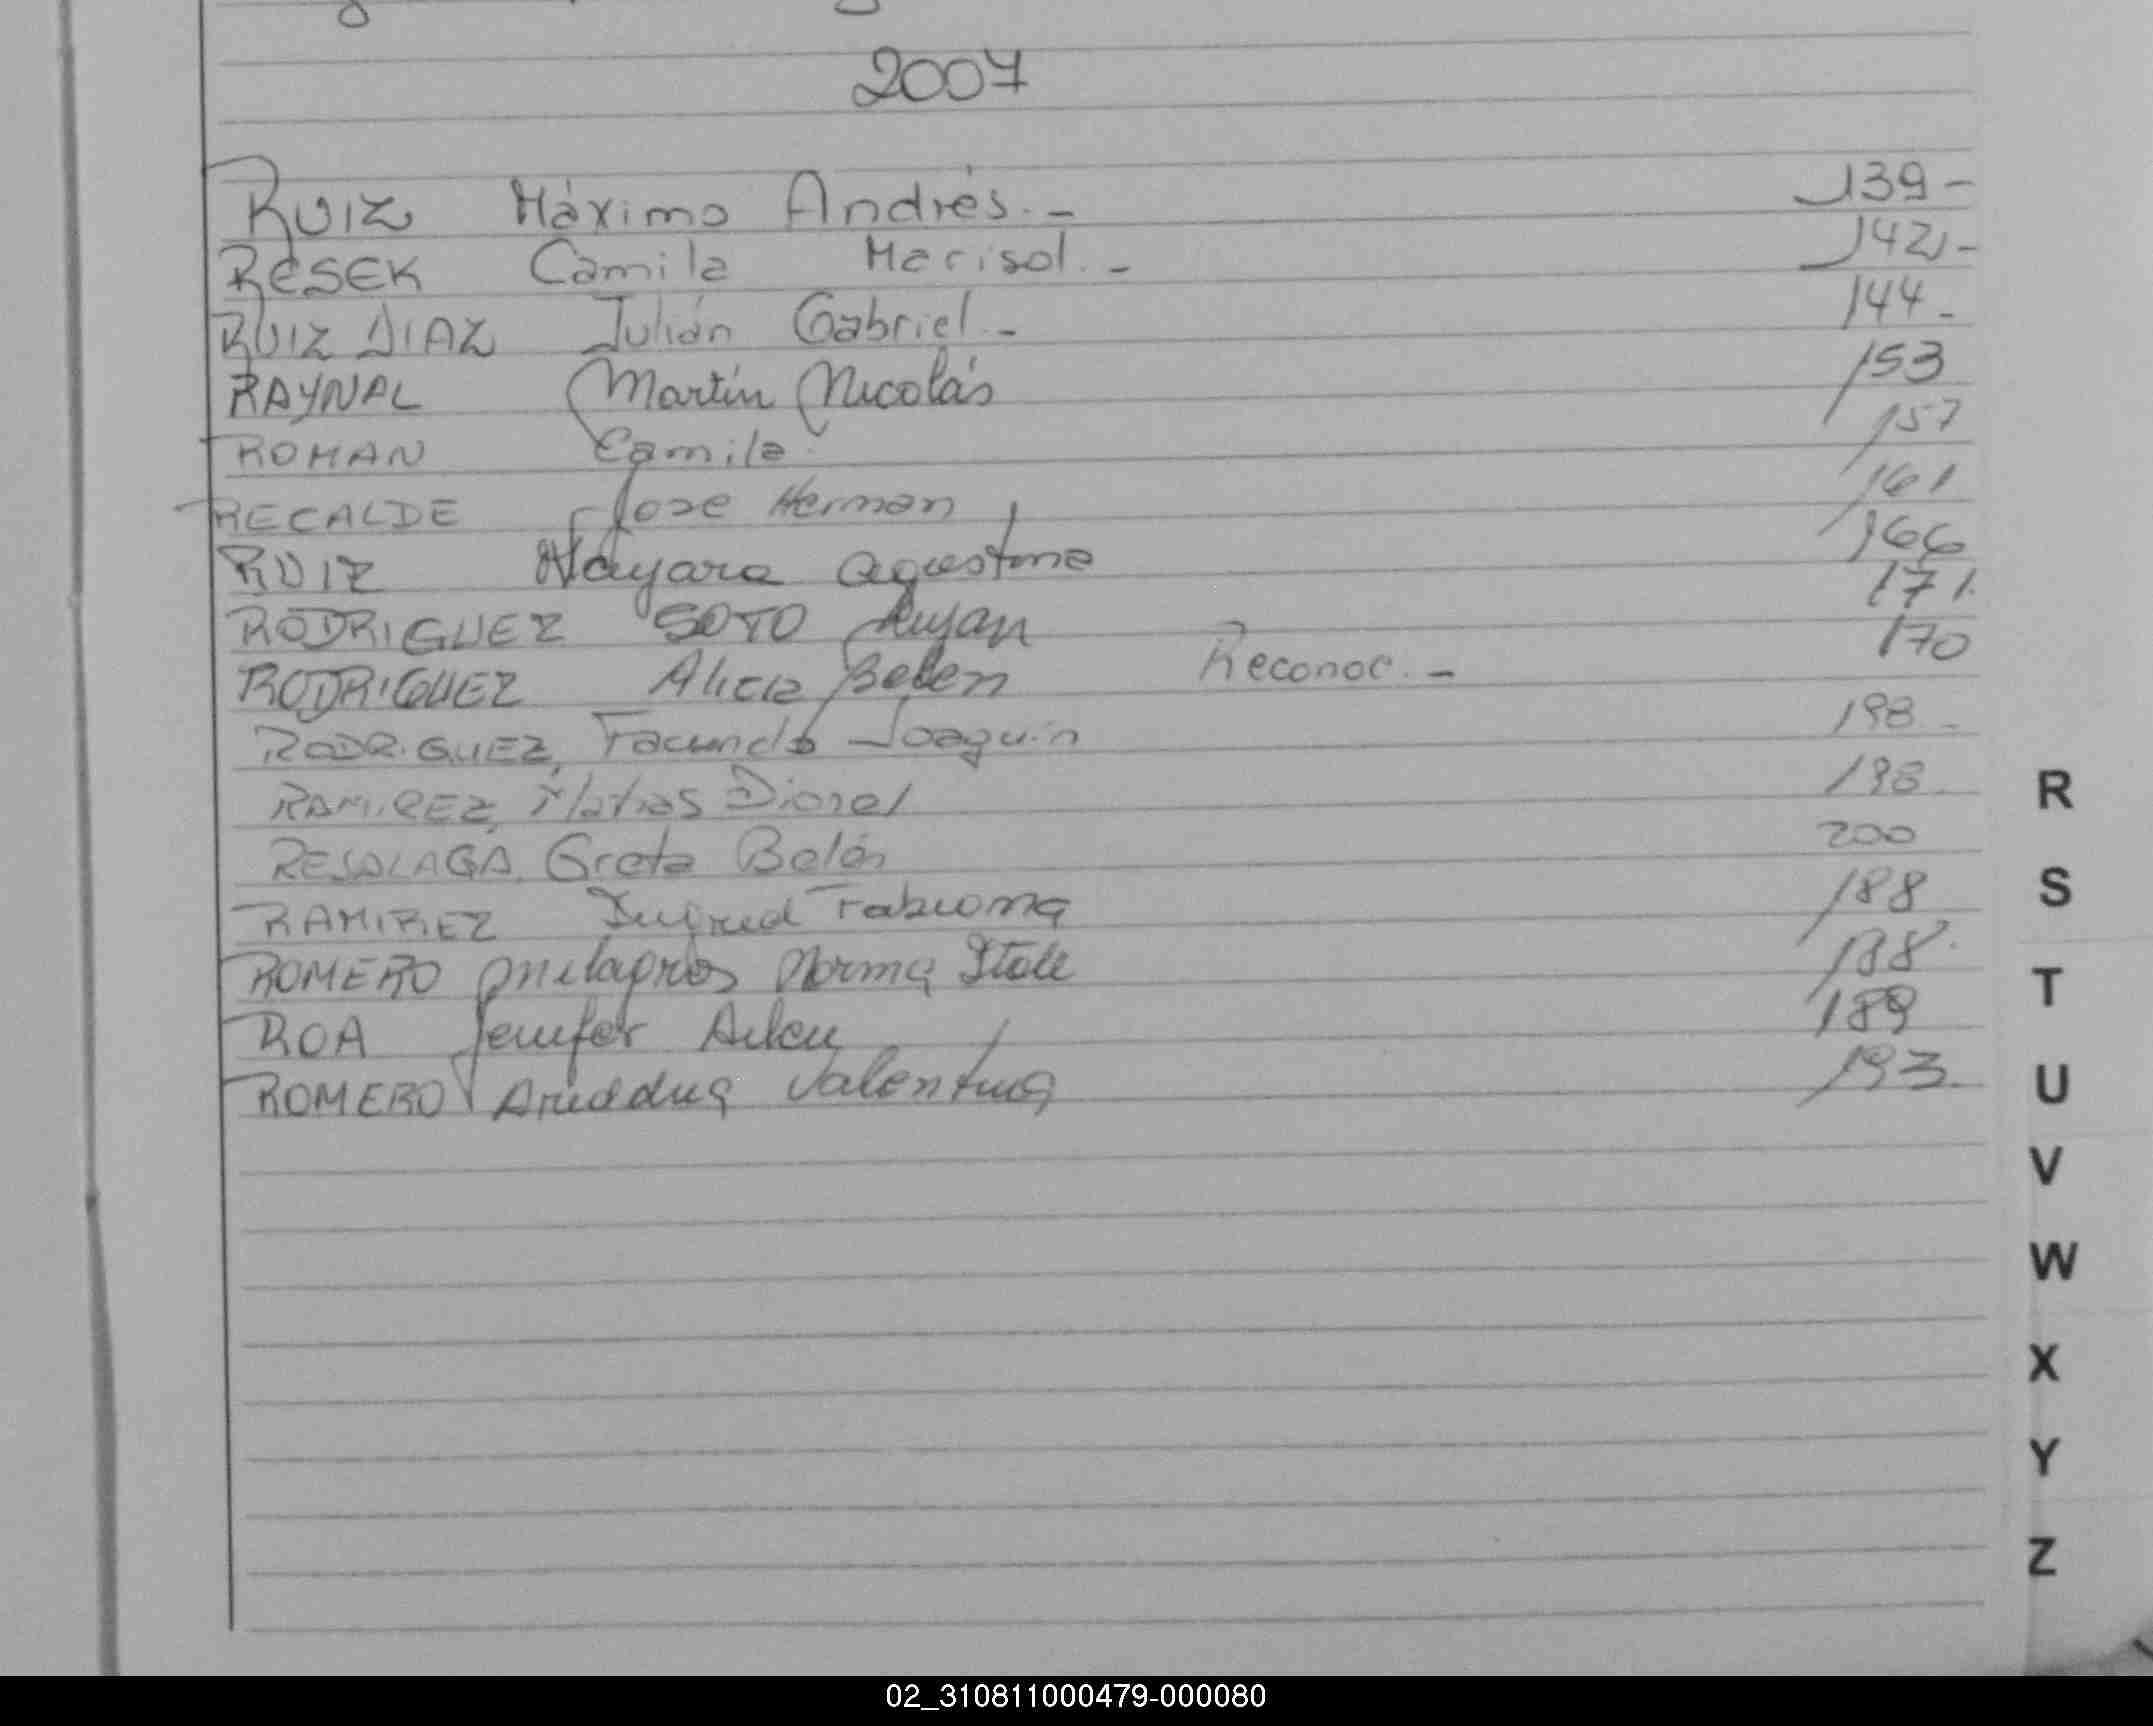 2007
RUIZ Máximo Andrés.- 139-
RESEK Camila Marisol.- 142,-
RUIZ DIAZ Julián Gabriel.- 144-
RAYNAL Martín Nicolás 153
ROMAN Camila 157
RECALDE Jose Hernan 161
RUIZ Nayara Agustina 166
RODRIGUEZ SOTO Lujan 171.
RODRIGUEZ Alicia Belen Reconoc.- 170
RODRIGUEZ, Facundo Joaquin 198-
RAMIREZ, Matias Dionel 198
Greta Belén 200
RAMIREZ Ingrid Fabiana 188
ROMERO milagros Norma Itati 188.
ROA Jenifer Ailen 189
ROMERO Ariadna Valentina 193
R
S
T
U
V
W
X
Y
Z
02_310811000479-000080